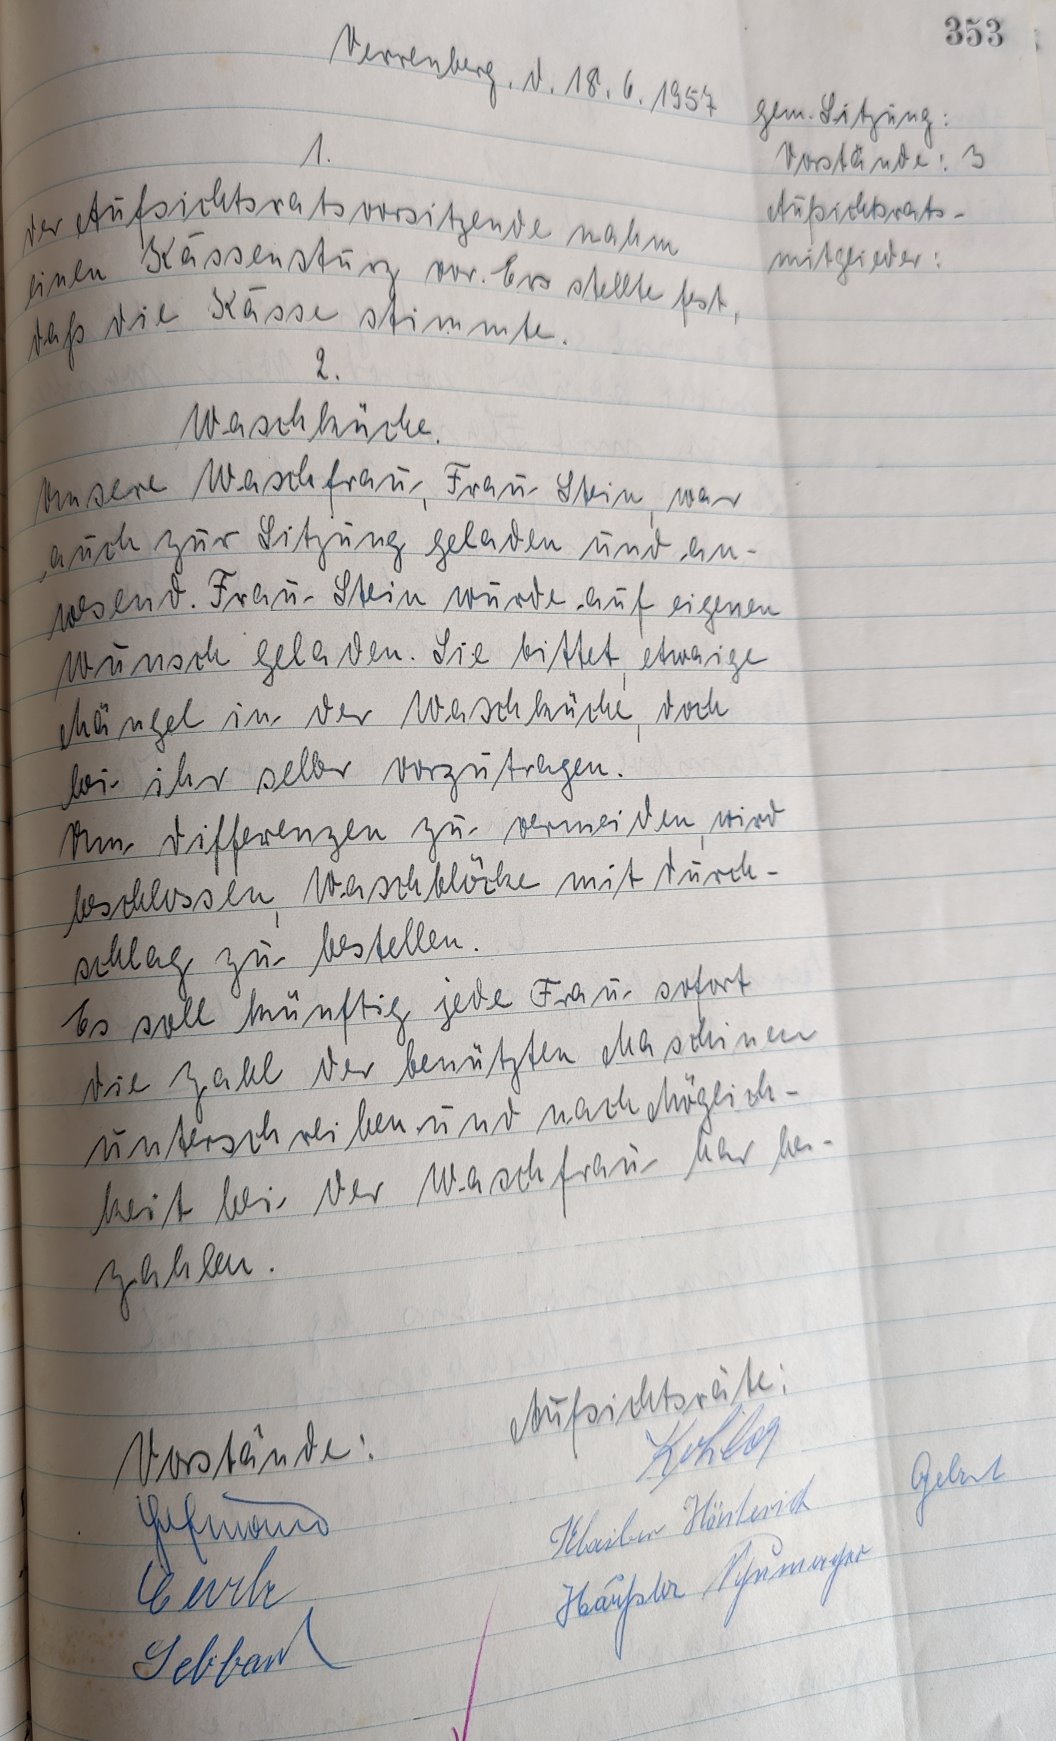 353
Verrenberg, d. 18. 6. 1957
gem. Sitzung:
Vorstände: 3
Aufsichtsrats-
mitglieder:
1.
Der Aufsichtsratsvorsitzende nahm
einen Kassensturz vor. Es stellte fest,
daß die Kasse stimmte.
2.
Waschküche.
Unsere Waschfrau, Frau Stein, war
auch zur Sitzung geladen und an-
wesend. Frau Stein wurde auf eigenen
Wunsch geladen. Sie bittet, etwaige
Mängel in der Waschküche, doch
bei ihr selber vorzutragen.
Um Differenzen zu vermeiden, wird
beschlossen, Waschblöcke mit Durch-
schlag zu bestellen.
Es soll künftig jede Frau sofort
die Zahl der benützten Maschinen
unterschreiben und nach Möglich-
keit bei der Waschfrau bar be-
zahlen.
Vorstände:
Aufsichtsräte:
Klaiber
Häußler
Gebert